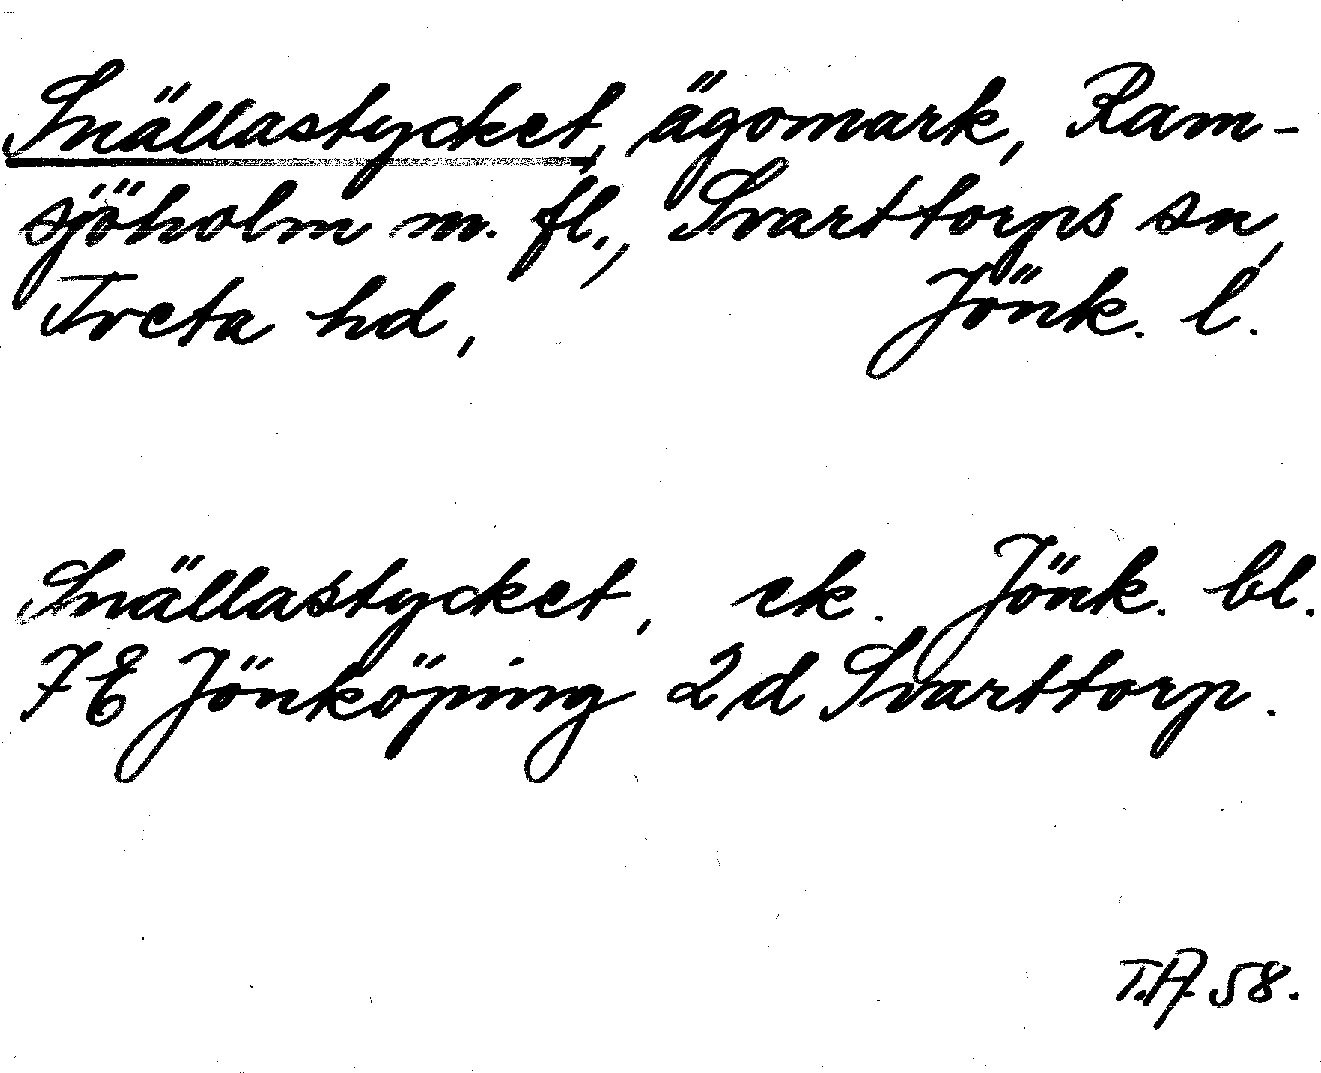 Snällastycket, ägomark, Ram-
sjöholm m. fl., Svarttorps sn,
Tveta hd, Jönk. l.
Snällastycket, ek. Jönk. bl.
7E Jönköping 2d Svarttorp.
T.A. 58.